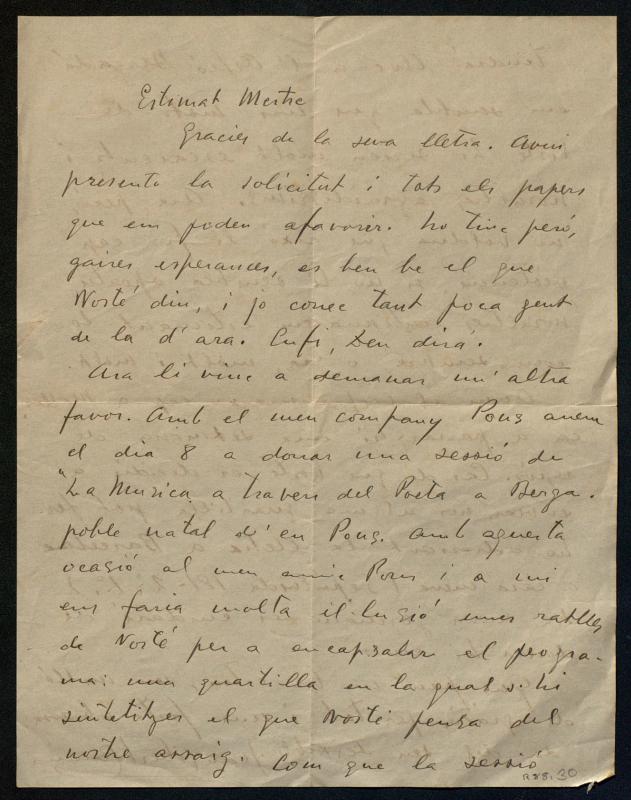 Estimat Mestre
Gracies de la seva lletra. Avui
presento la solicitut i tots els papers
que em poden afavorir. No tinc però,
gaires esperances, es ben be el que
Vosté diu, i jo conec tant poca gent
de la d'ara. Enfi, Deu dirà.
Ara li vinc a demanar un' altra
favor. Amb el meu company Pous anem
el dia 8 a donar una sessió de
"La Musica a traves del Poeta a Berga.
poble natal d'en Pous. Amb aquesta
ocasió al meu amic Pous i a mi
ens faria molta il·lusió unes ratlles
de Vosté per a encapsalar el progra-
ma: una quartilla en la qual s'hi
sintetitzes el que Vosté pensa del
nostre assaig. Com que la sessió
R88.30